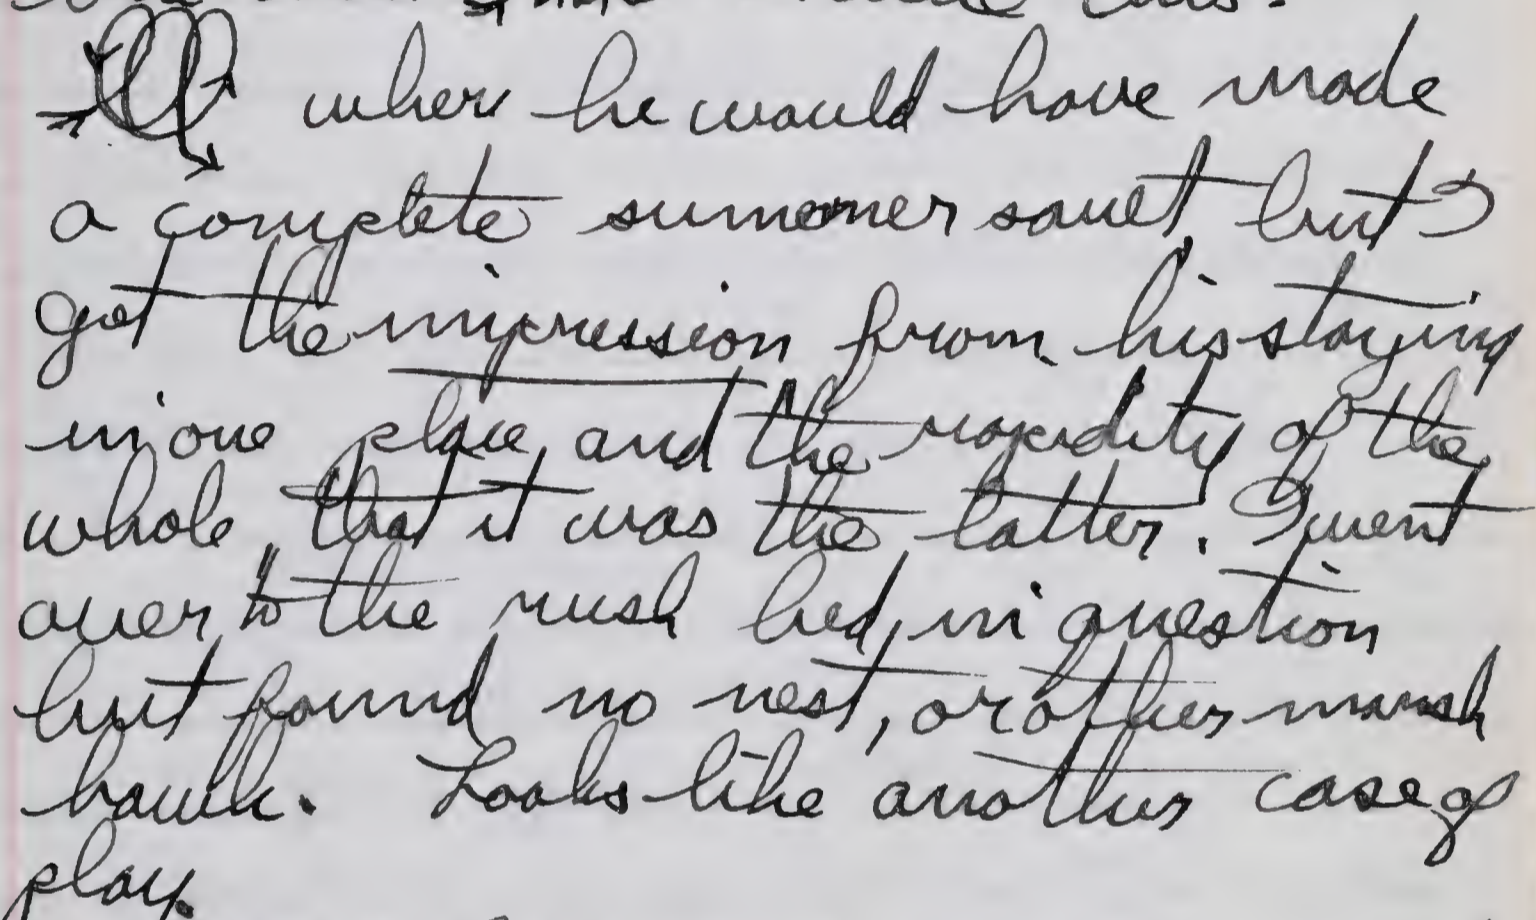 where he would have made
a complete summer sauet, but I
got the impression from his staying
in one place, and the rapidity of the
whole, that it was the latter. I went
over to the rush bed, in question
but found no nest, or other marsh
hawk. Looks like another case of
play.